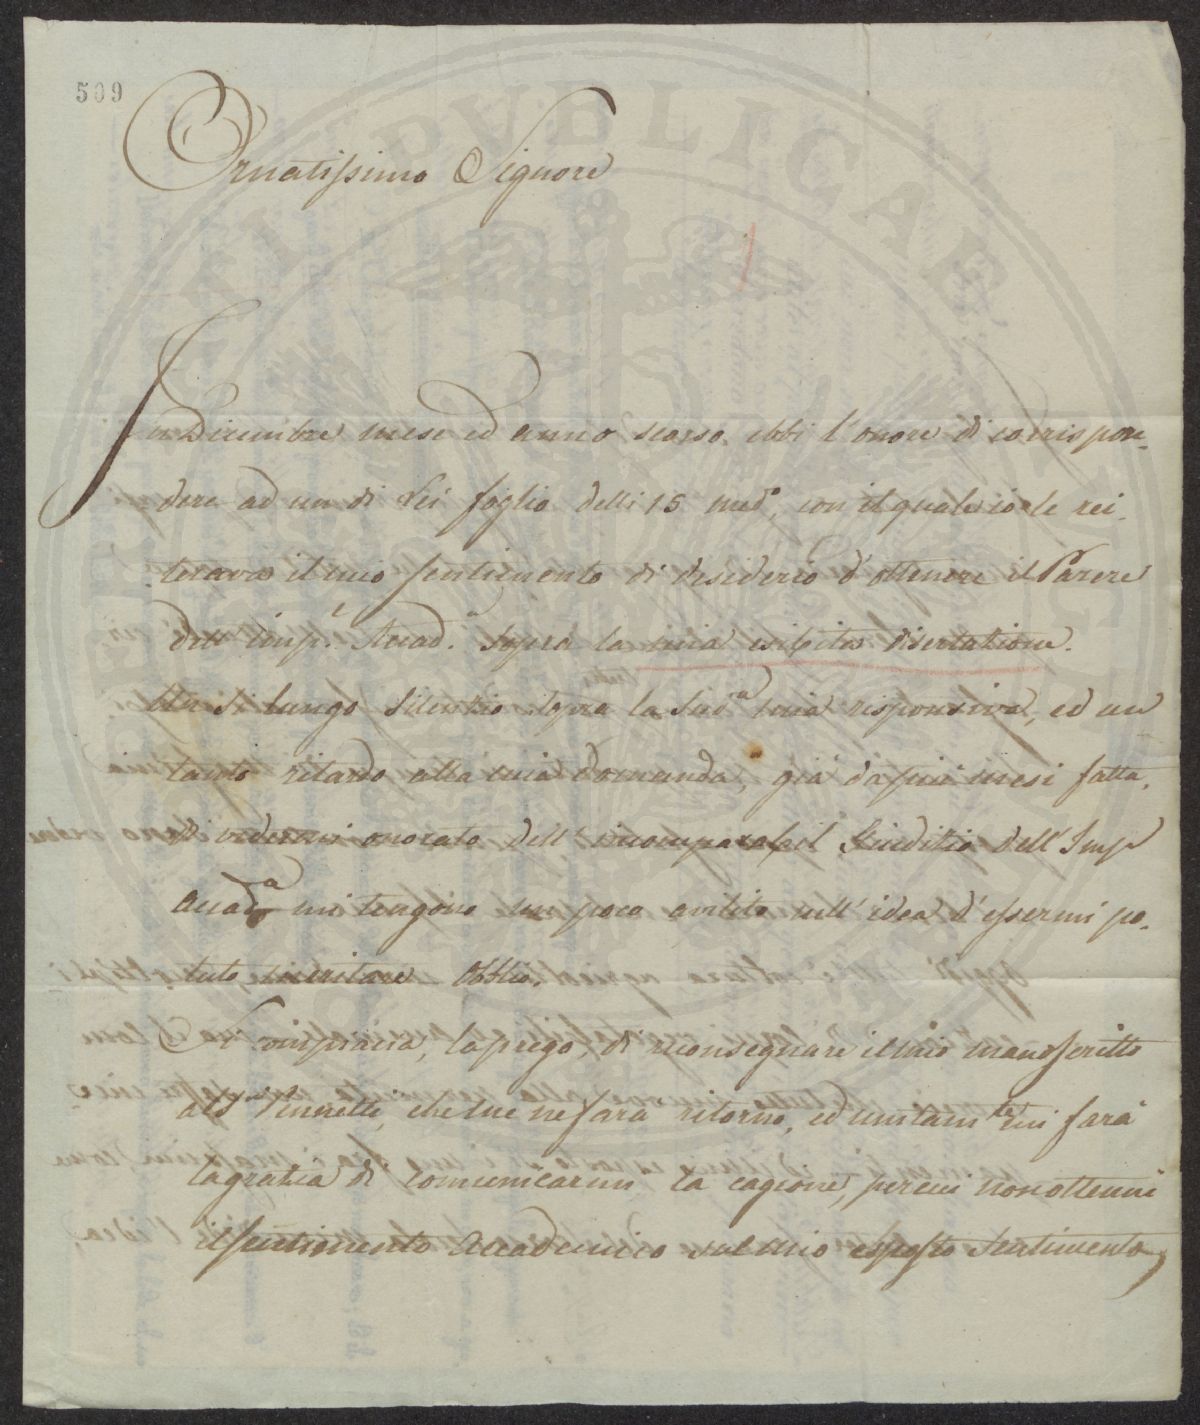 509
Ornatissimo Signore
In Dicembre mese ed anno scorso ebbi l'onore di corrispon-
dere ad un di Lei foglio delli 15 med.º, con il quale io le rei-
teravo il mio sentimento di desiderio d'ottenere il Parere
dell' Imp.l Accad.a sopra la mia esibita disertazione.
Un sì lungo silentio sopra la sud.a mia risponsiva, ed un
tanto ritardo alla mia domanda, già da più mesi fatta,
di vedermi onorato dell' incomparabil Giuditio dell' Imp.e
Accad.a mi tengono un poco avilito nell' idea d'essermi po-
tuto meritare Obblio.
Si compiaccia, la prego, di riconsegnare il mio manoscritto
al S.r, che me ne farà ritorno, ed unitam.te mi farà
la gratia di comunicarmi la cagione, per cui non ottenni
il sentimento Accademico sul mio esposto Sentimento,